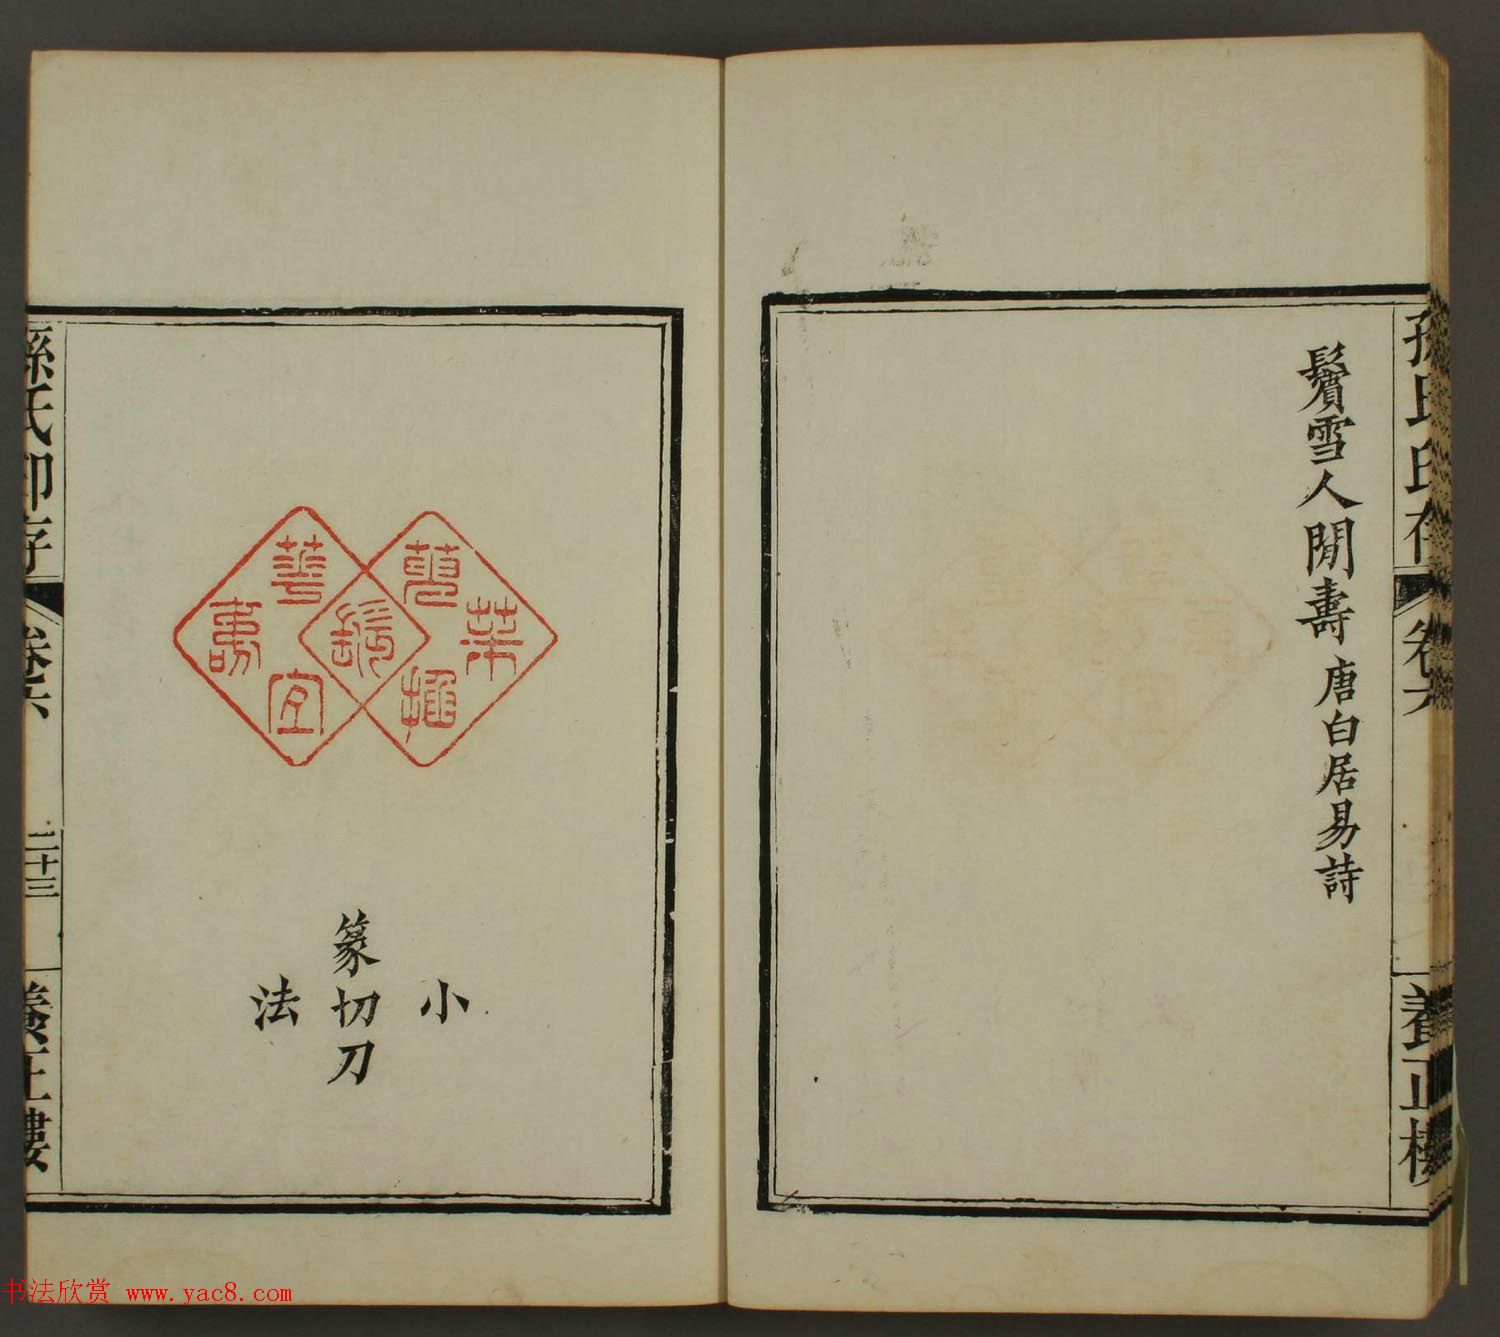 孫氏印存 卷六 養正樓
鬢雪人閒壽 唐白居易詩
茱萸插鬢華宜壽
小
篆切刀
法
孫氏印存 卷六 二十三 養正樓
书法欣赏 www.yac8.com